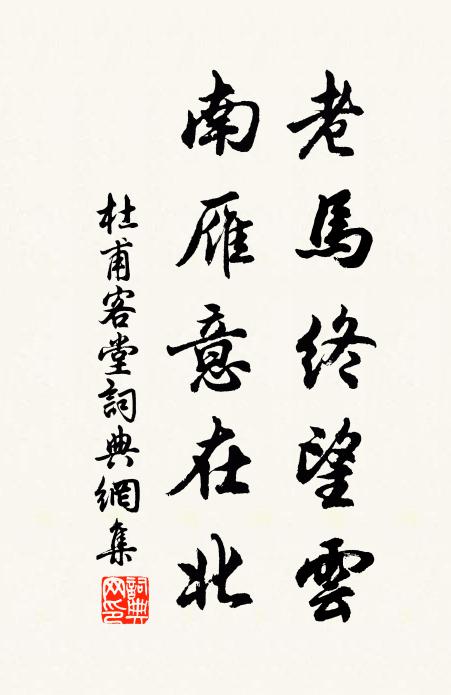 老馬終望雲
南雁意在北
杜甫客堂詞典網集
詞典网印